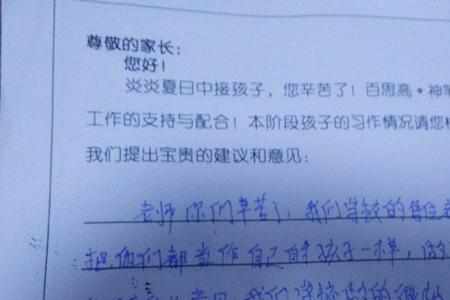 尊敬的家长：
您好！
炎炎夏日中接孩子，您辛苦了！百思高·神笔
工作的支持与配合！本阶段孩子的习作情况请您
我们提出宝贵的建议和意见：
老师你们辛苦了，我们学校的每位
把他们都当作自己的孩子一样，
我们学校